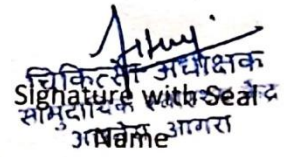 चिकित्सा अधीक्षक
Signature with Seal
सामुदायिक स्वास्थ्य केन्द्र
आगरा
Name